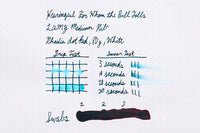 Nearingful For Whom the Bell Tolls
LAMY Medium Nib
Rhodia dotPad, 80g, White
Drip Test
Smear Test
5 seconds
10 seconds
15 seconds
20 seconds
1 2 3
Swabs